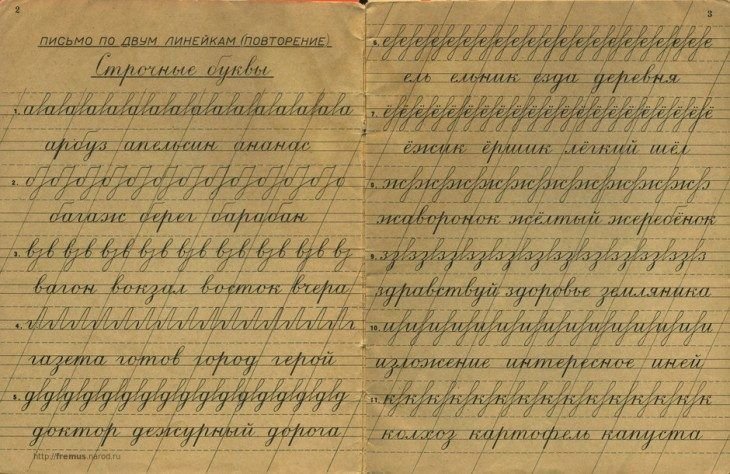 2
ПИСЬМО ПО ДВУМ ЛИНЕЙКАМ (ПОВТОРЕНИЕ)
Строчные буквы
1. а а а а а а а а а а а а а а
арбуз апельсин ананас
2. б б б б б б б б б
багаж берег барабан
3. в в в в в в в в в
вагон вокзал восток вчера
4. г г г г г г г г г г г г г
газета готов город герой
5. д д д д д д д д д д д д д
доктор дежурный дорога
http://fremus.narod.ru
3
6. е е е е е е е е е е е е е е е е
ель ельник езда деревня
7. ё ё ё ё ё ё ё ё ё ё ё ё ё ё ё ё
ёжик ёршик лёгкий шёл
8. ж ж ж ж ж ж ж ж ж ж
жаворонок жёлтый жеребёнок
9. з з з з з з з з з з з з
здравствуй здоровье земляника
10. и и и и и и и и и и и и
изложение интересное иней
11. к к к к к к к к к к к к
колхоз картофель капуста